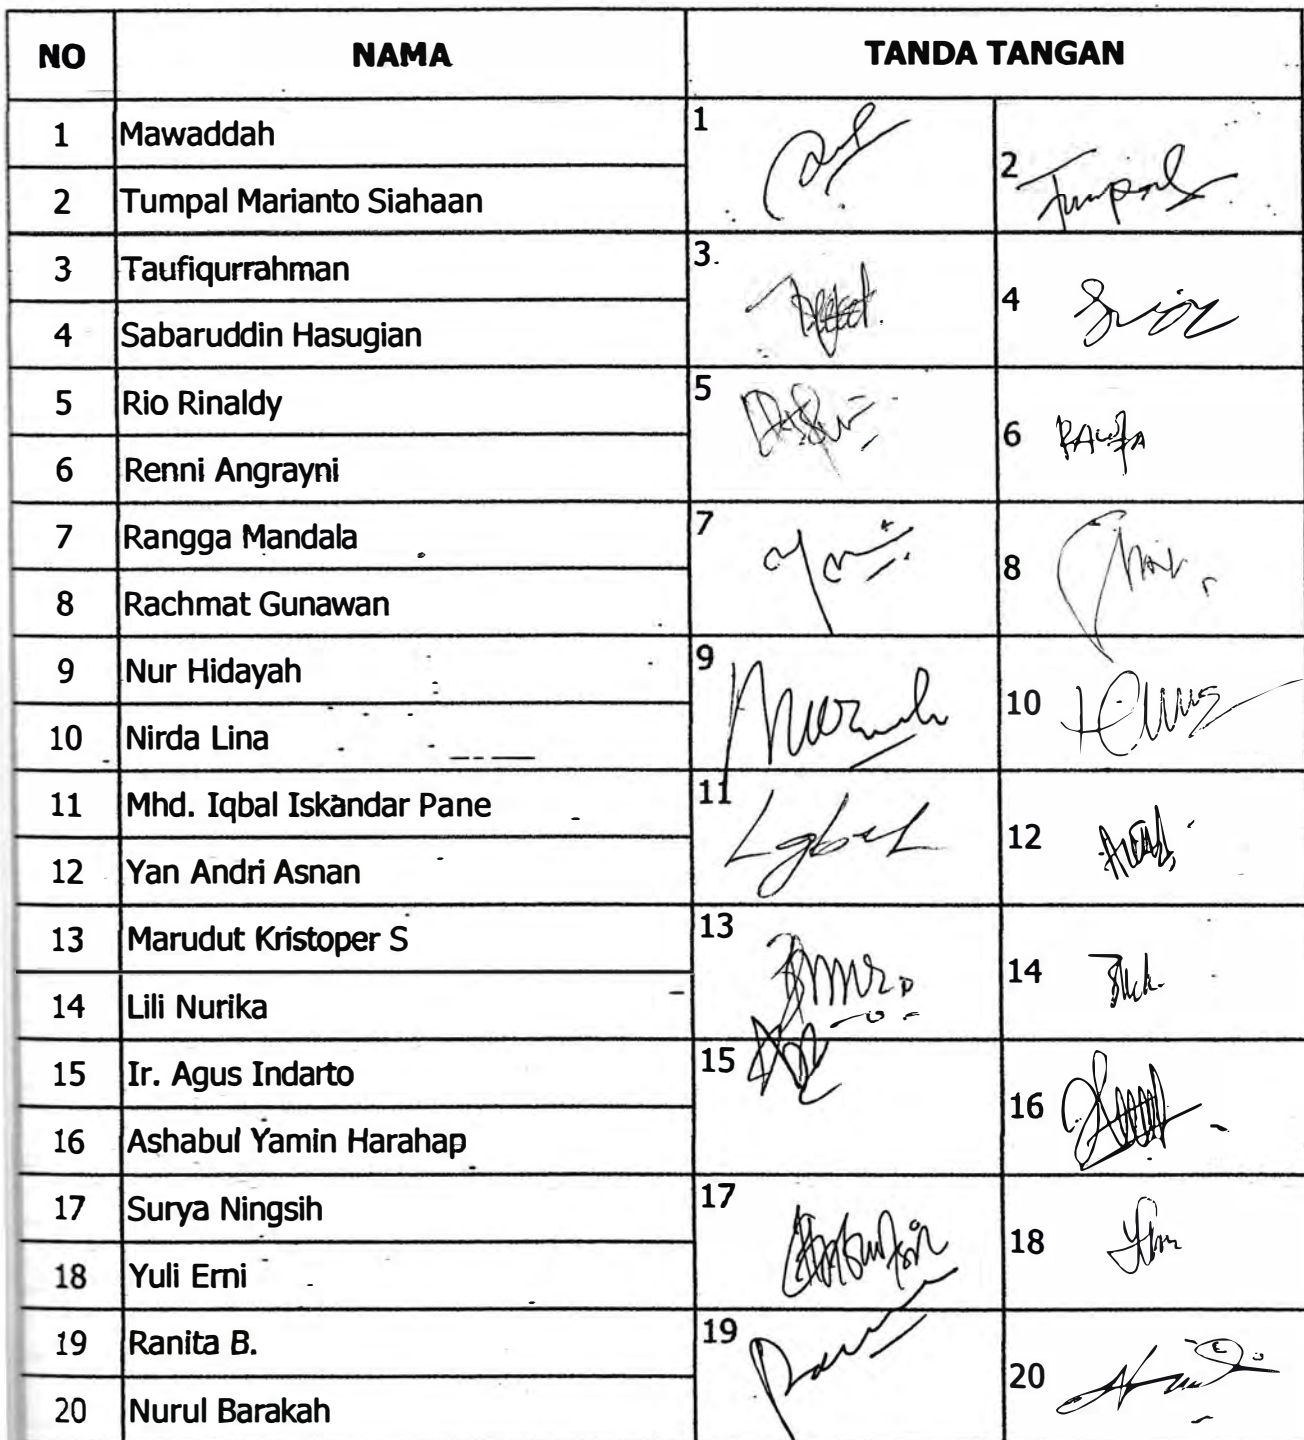 NO NAMA TANDA TANGAN
1 Mawaddah 1
2 Tumpal Marianto Siahaan 2 Tumpal
3 Taufiqurrahman 3.
4 Sabaruddin Hasugian 4
5 Rio Rinaldy 5
6 Renni Angrayni 6
7 Rangga Mandala 7
8 Rachmat Gunawan 8
9 Nur Hidayah 9
10 Nirda Lina 10
11 Mhd. Iqbal Iskandar Pane 11
12 Yan Andri Asnan 12
13 Marudut Kristoper S 13
14 Lili Nurika 14
15 Ir. Agus Indarto 15
16 Ashabul Yamin Harahap 16
17 Surya Ningsih 17
18 Yuli Erni 18
19 Ranita B. 19
20 Nurul Barakah 20